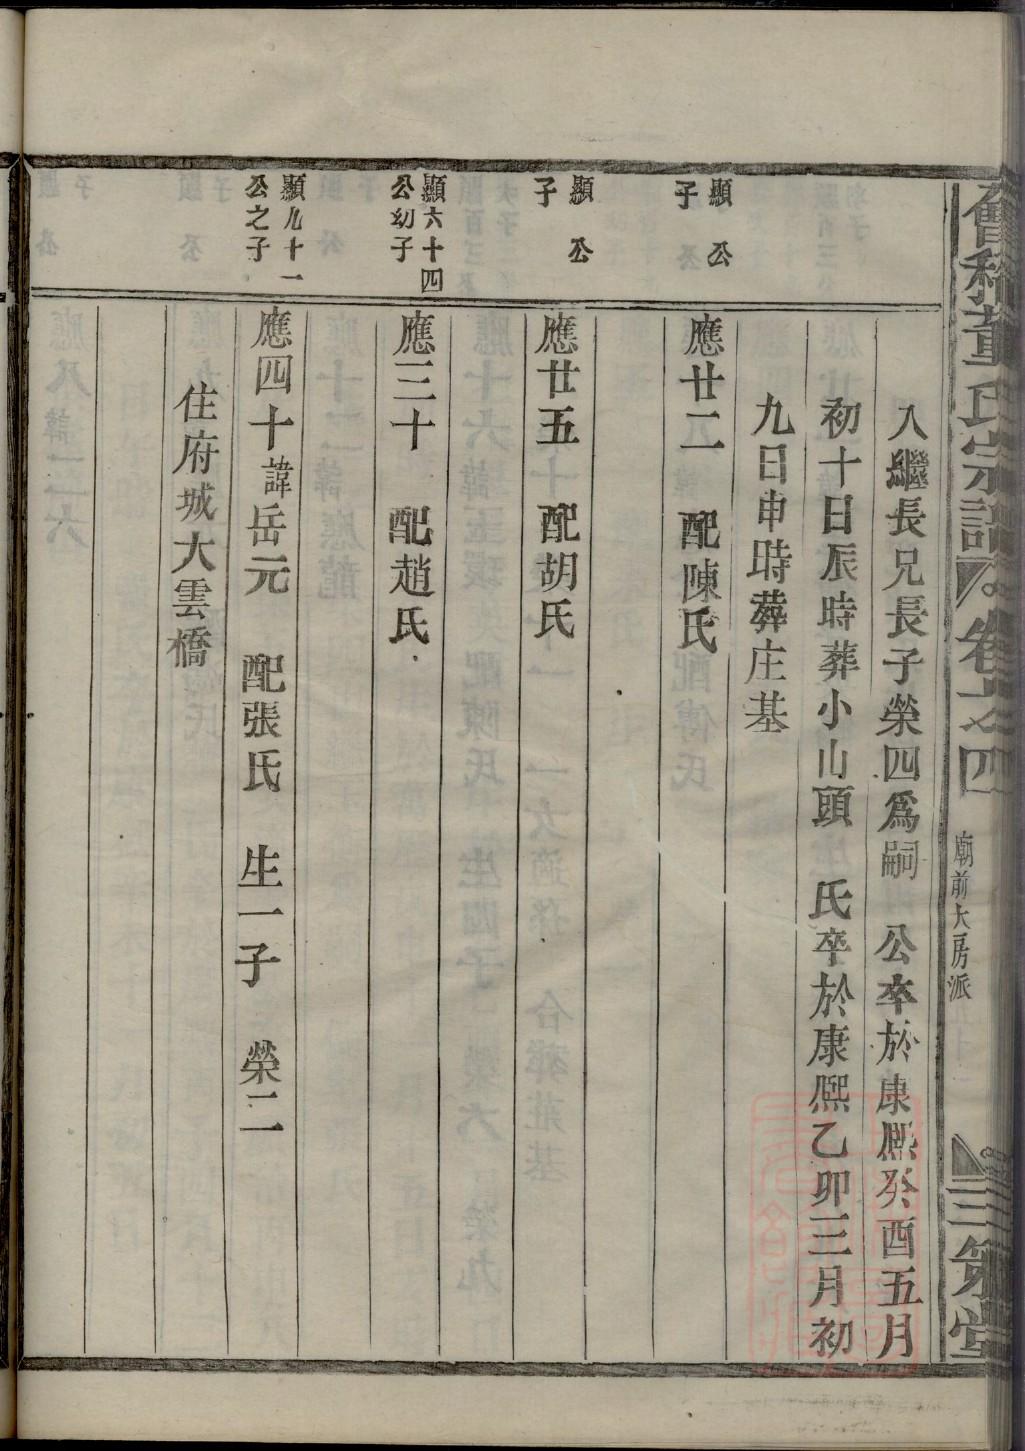 會稽董氏宗譜 卷十之四 廟前大房派 三策堂
入繼長兄長子榮四爲嗣 公卒於康熙癸酉五月
初十日辰時葬小山頭 氏卒於康熙乙卯三月初
九日申時葬庄基
顯 公
子
應廿二 配陳氏
顯 公
子
應廿五 配胡氏
顯六十四
公幼子
應三十 配趙氏
顯九十一
公之子
應四十諱岳元 配張氏 生一子 榮二
住府城大雲橋